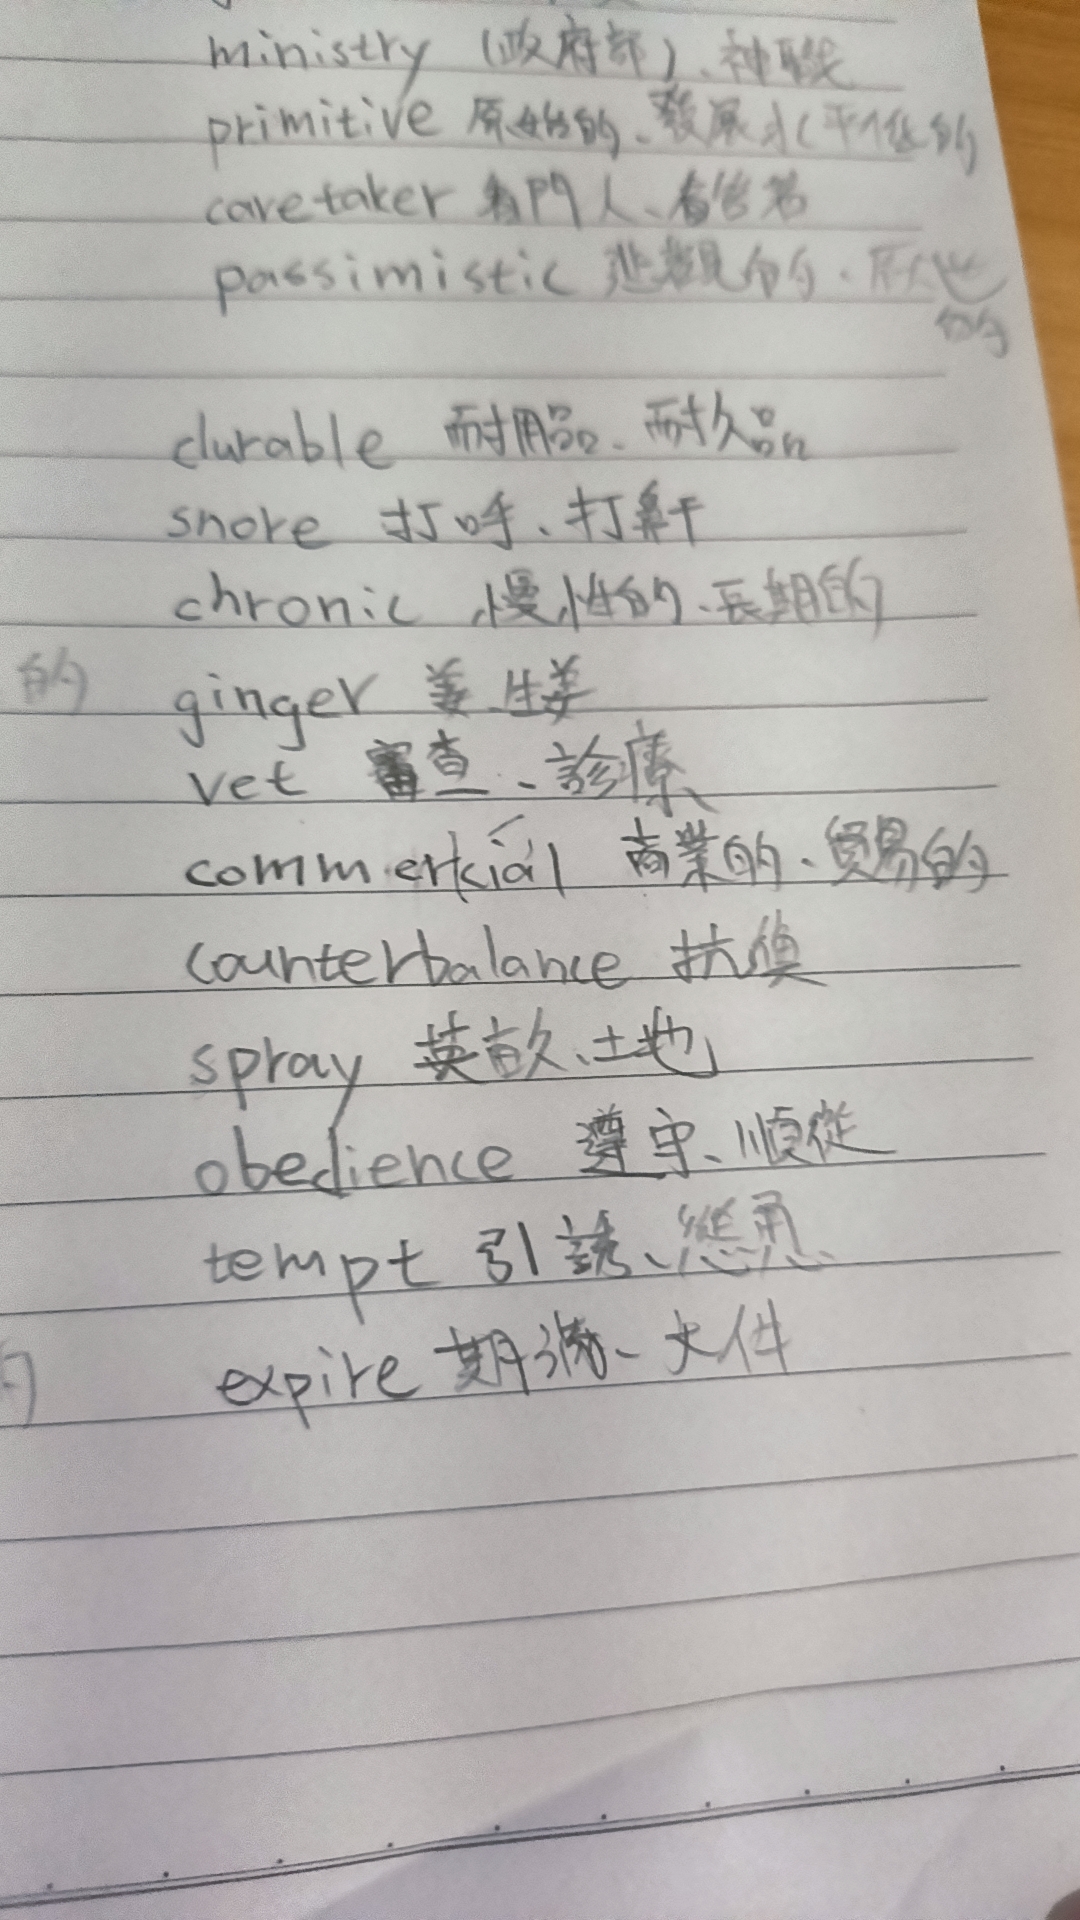 ministry (政府部)、神職
primitive 原始的、發展水平低的
caretaker 看門人、看管者
passimistic 悲觀的、厭世的
durable 耐用品、耐久品
snore 打呼、打鼾
chronic 慢性的、長期的
的 ginger 姜、生姜
vet 審查、診療
commercial 商業的、貿易的
counterbalance 抗衡
spray 英畝、土地
obedience 遵守、順從
tempt 引誘、慫恿
expire 期滿、